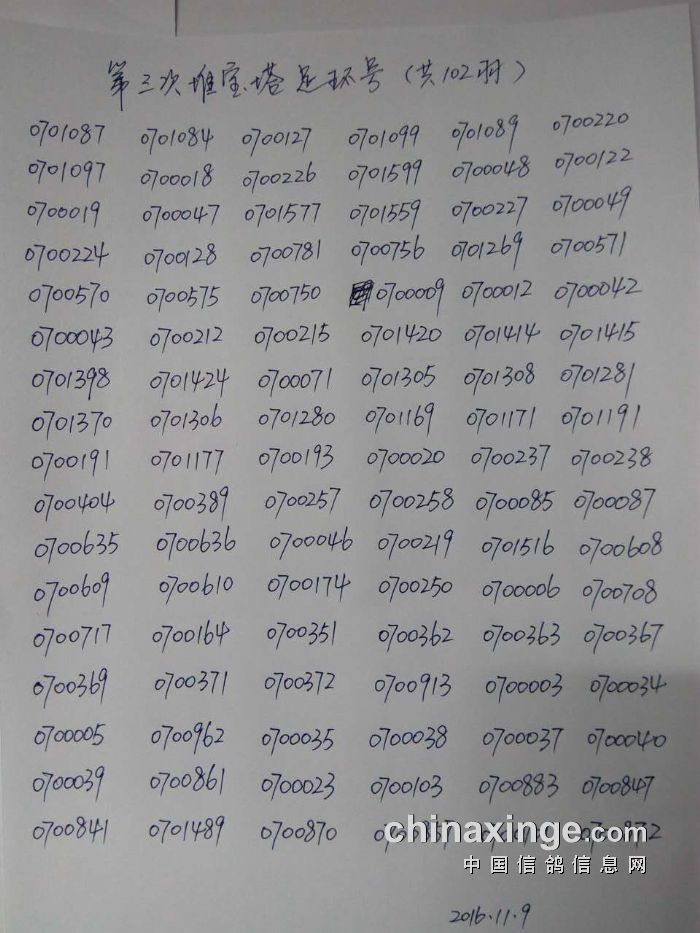 第三次堆宝塔足环号（共102羽）
0701087 0701084 0700127 0701099 0701089 0700220
0701097 0700018 0700226 0701599 0700048 0700122
0700019 0700047 0701577 0701559 0700227 0700049
0700224 0700128 0700781 0700756 0701269 0700571
0700570 0700575 0700750 0700009 0700012 0700042
0700043 0700212 0700215 0701420 0701414 0701415
0701398 0701424 0700071 0701305 0701308 0701281
0701370 0701306 0701280 0701169 0701171 0701191
0700191 0701177 0700193 0700020 0700237 0700238
0700404 0700389 0700257 0700258 0700085 0700087
0700635 0700636 0700046 0700219 0701516 0700608
0700609 0700610 0700174 0700250 0700006 0700708
0700717 0700164 0700351 0700362 0700363 0700367
0700369 0700371 0700372 0700913 0700003 0700034
0700005 0700962 0700035 0700038 0700037 0700040
0700039 0700861 0700023 0700103 0700883 0700847
0700841 0701489 0700870
chinaxinge.com
中国信鸽信息网
2016.11.9